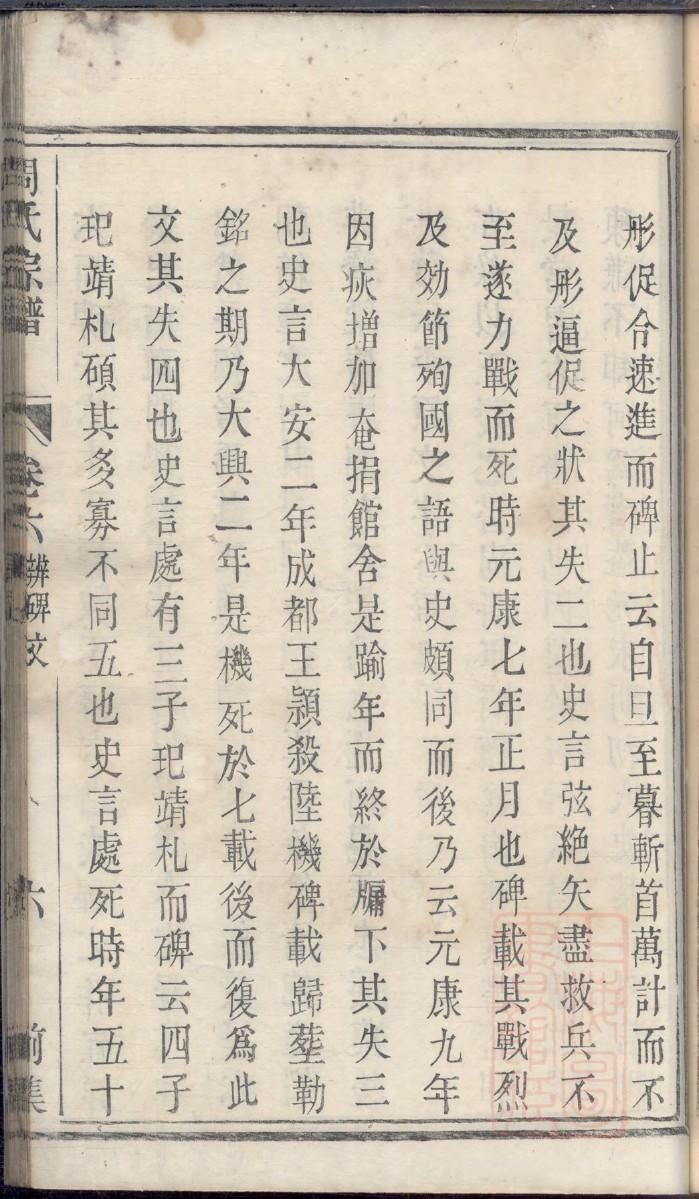 形促令速進而碑止云自旦至暮斬首萬計而不
及形逼促之狀其失二也史言弦絶矢盡救兵不
至遂力戰而死時元康七年正月也碑載其戰烈
及効節殉國之語與史頗同而後乃云元康九年
因疾增加奄捐館舍是踰年而終於牖下其失三
也史言大安二年成都王潁殺陸機碑載歸塟勒
銘之期乃大興二年是機死於七載後而復爲此
文其失四也史言處有三子玘靖札而碑云四子
玘靖札碩其多寡不同五也史言處死時年五十
周氏宗譜 卷之六 辯碑文 六 前集